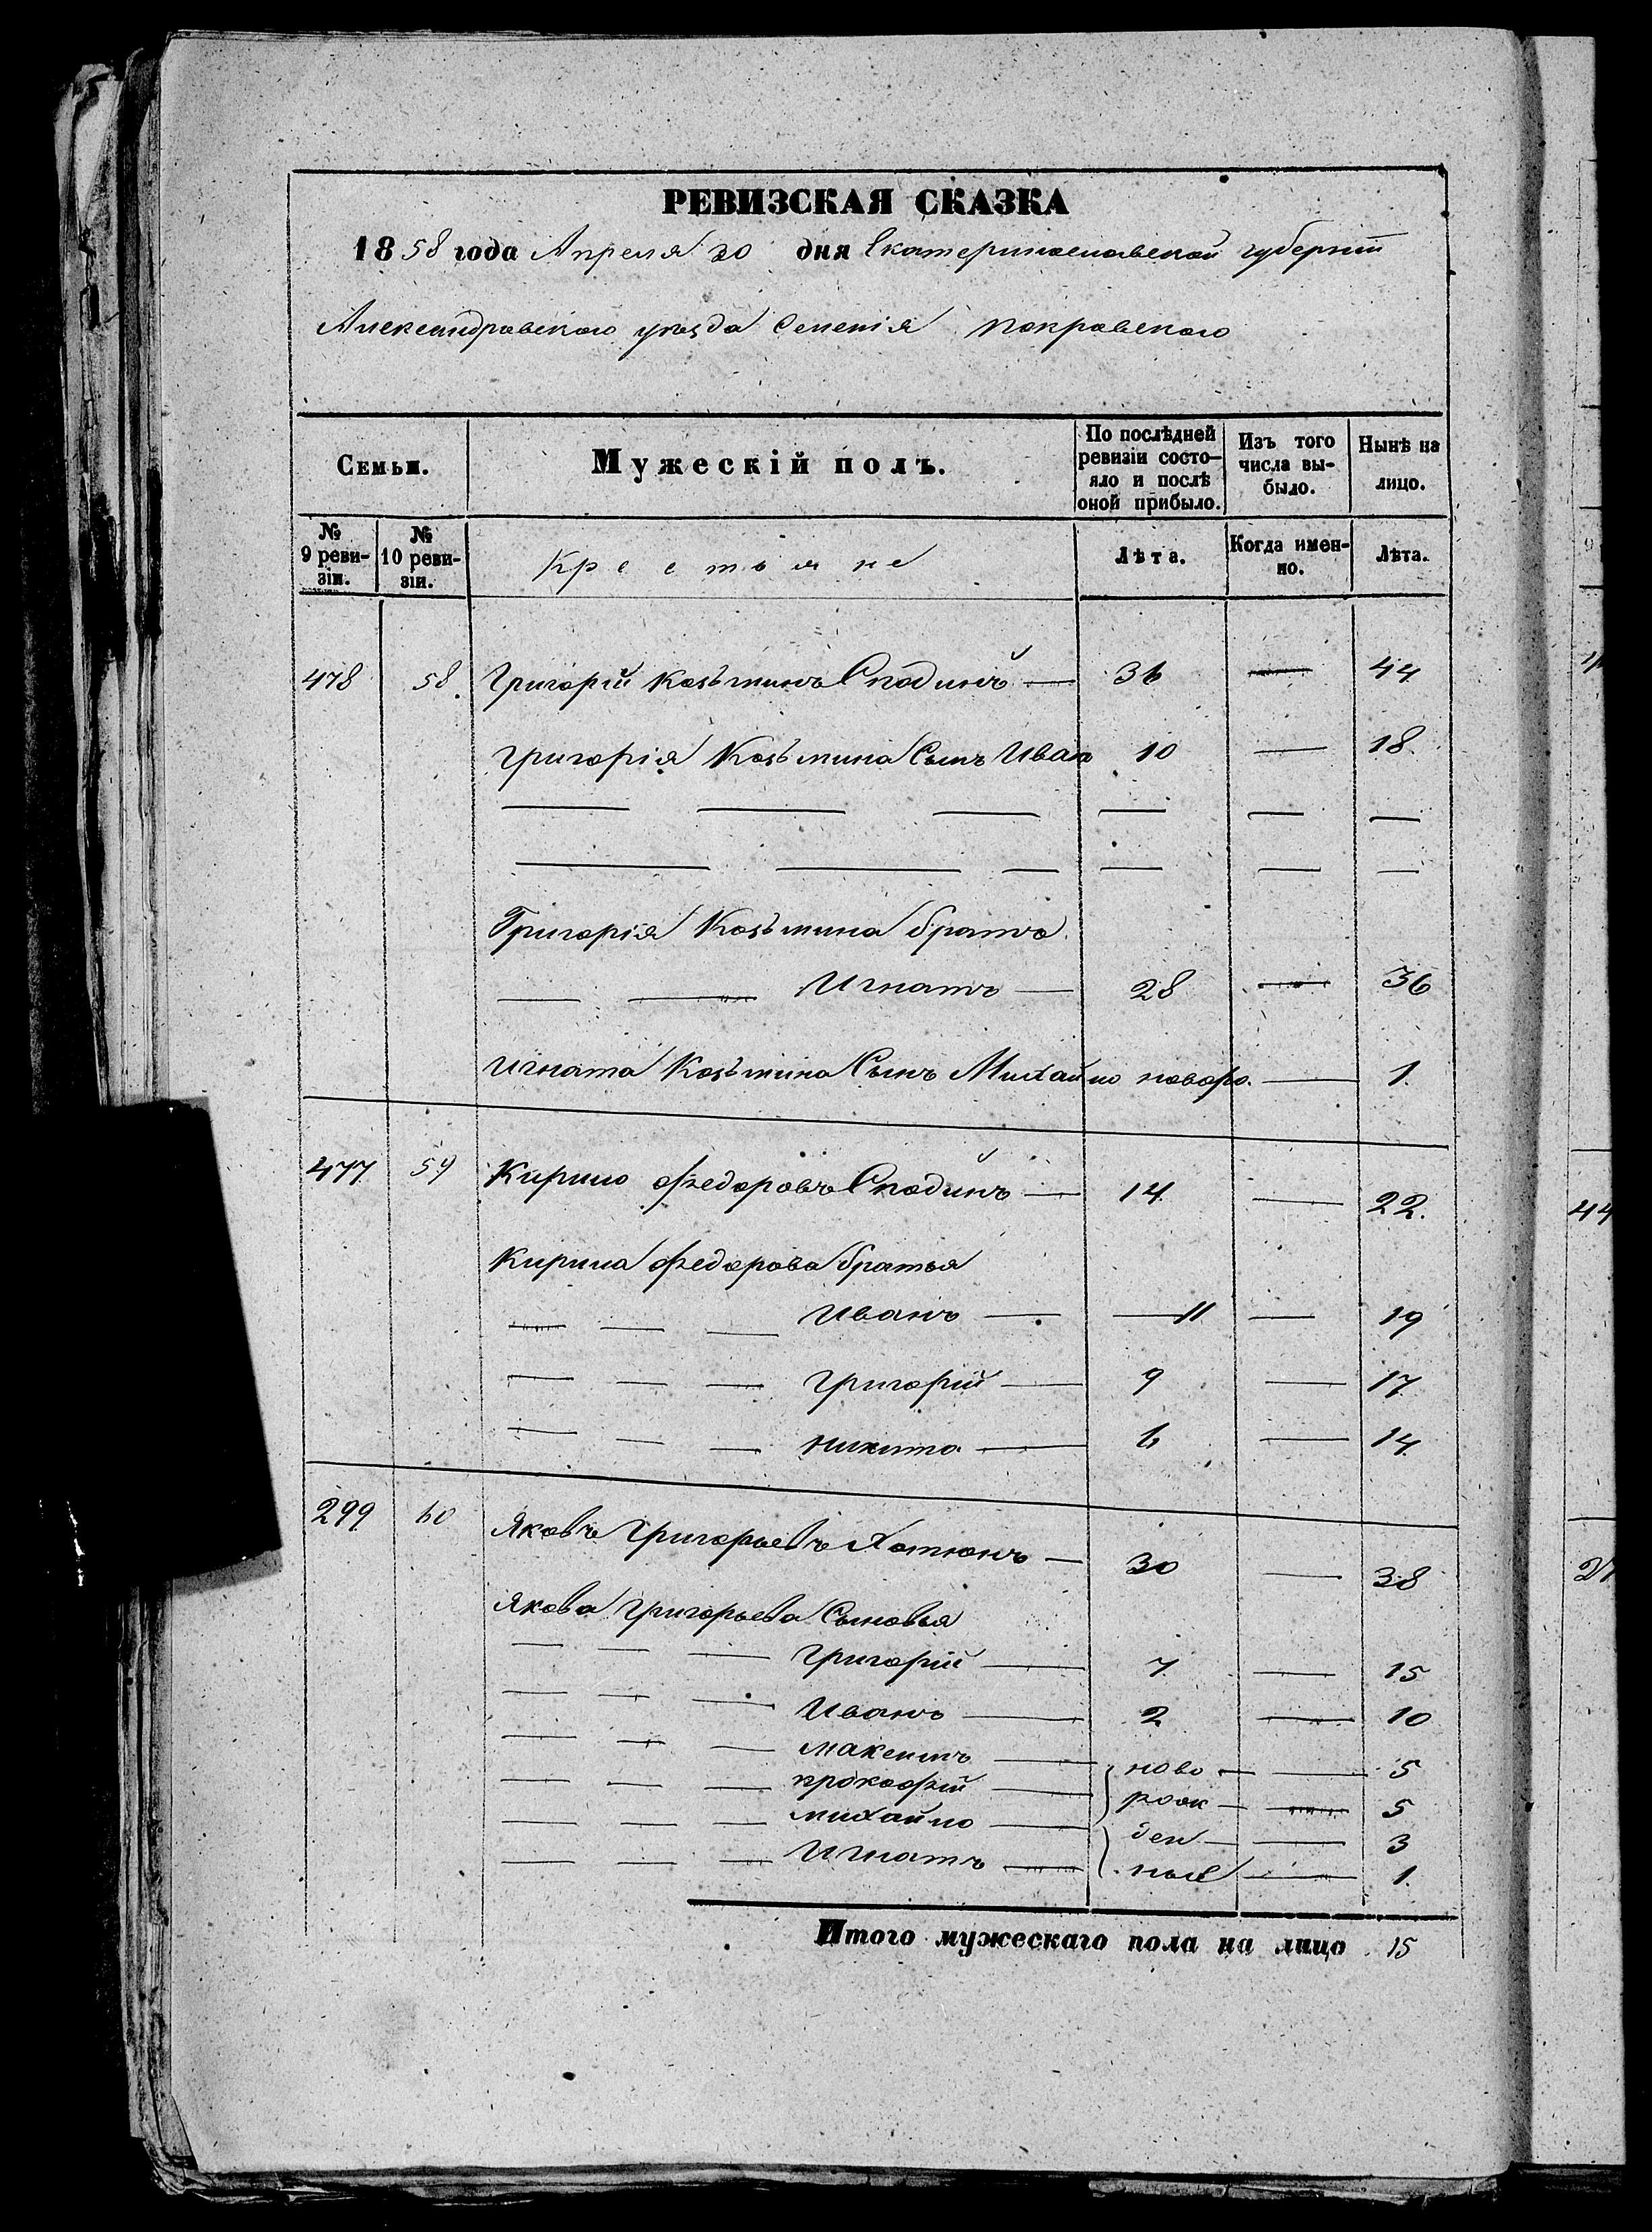 РЕВИЗСКАЯ СКАЗКА
1858 года Апреля 30 дня Екатеринославской губерніи
Александровского уѣзда Селенія покровского
Семьи. Мужескій полъ. По послѣдней ревизіи состояло и послѣ оной прибыло. Изъ того числа выбыло. Нынѣ на лицо.
№ 9 ревизіи. № 10 ревизіи. Крестьяне Лѣта. Когда именно. Лѣта.
478 58. Григорій Козьминъ Сподинъ — 36 — 44
Григорія Козьмина Сынъ Иван 10 — 18.
Григорія Козьмина братъ
Игнатъ — 28 — 36
Игната Козьмина Сынъ Михайло новоро. — 1.
477 59 Кирило Федоровъ Сподинъ — 14 — 22.
Кирила Федорова братья
Иванъ — 11 — 19
Григорій — 9 — 17
никита — 6 — 14.
299 60 Яковъ Григорьевъ Хотюнъ — 30 — 38
Якова Григорьева Сыновья
Григорій — 7 — 15
Иванъ — 2 — 10
максимъ — ново — 5
прокофій — рож — 5
михайло — ден — 3
Игнатъ — ные — 1.
Итого мужескаго пола на лицо 15